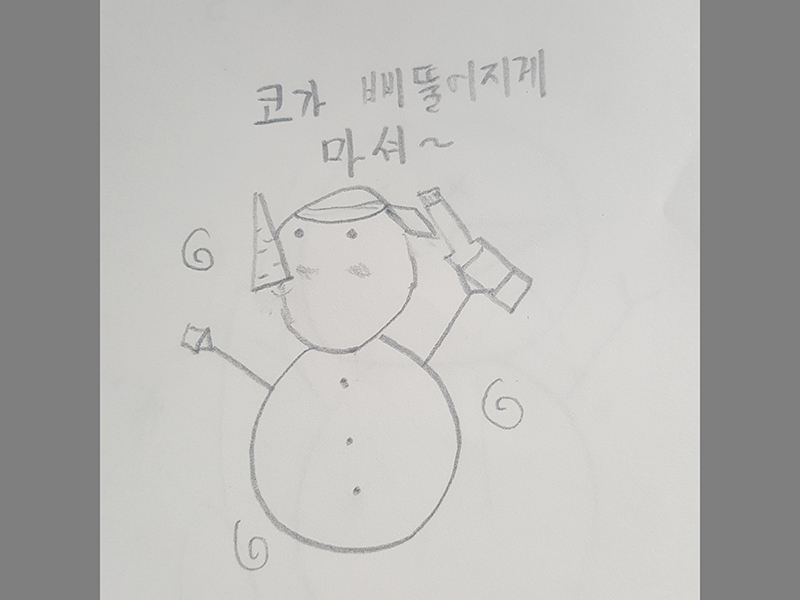 코가 삐뚤어지게
마셔~